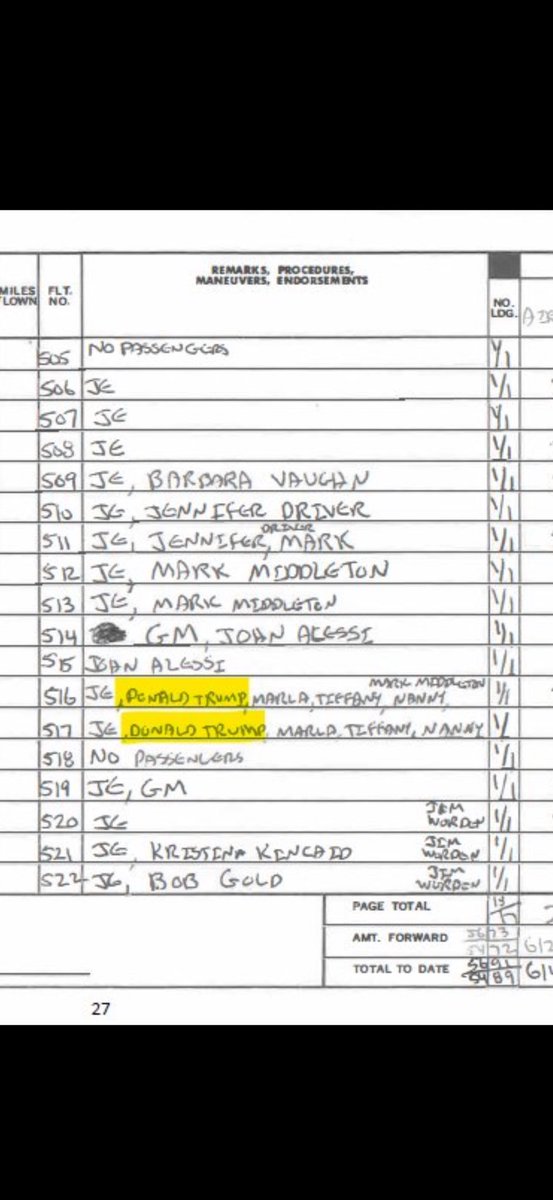 REMARKS, PROCEDURES,
MANEUVERS, ENDORSEMENTS
MILES FLT. NO.
FLOWN NO. LDG.
505 NO PASSENGERS 1/1
506 JE 1/1
507 JE 1/1
508 JE 1/1
509 JE, BARBARA VAUGHN 1/1
510 JE, JENNIFER DRIVER 1/1
DRIVER
511 JE, JENNIFER, MARK 1/1
512 JE, MARK MIDDLETON 1/1
513 JE, MARK MIDDLETON 1/1
514 GM, JOHN ALESSI 1/1
515 JOHN ALESSI 1/1
MARK MIDDLETON
516 JE, DONALD TRUMP, MARLA, TIFFANY, NANNY, 1/1
517 JE, DONALD TRUMP, MARLA, TIFFANY, NANNY 1/
518 NO PASSENGERS 1/1
519 JE, GM 1/1
JIM
520 JE WORDEN 1/1
JIM
521 JE, KRISTINA KINCAID WORDEN 1/1
JIM
522 JE, BOB GOLD WORDEN 1/1
PAGE TOTAL
AMT. FORWARD
TOTAL TO DATE
27